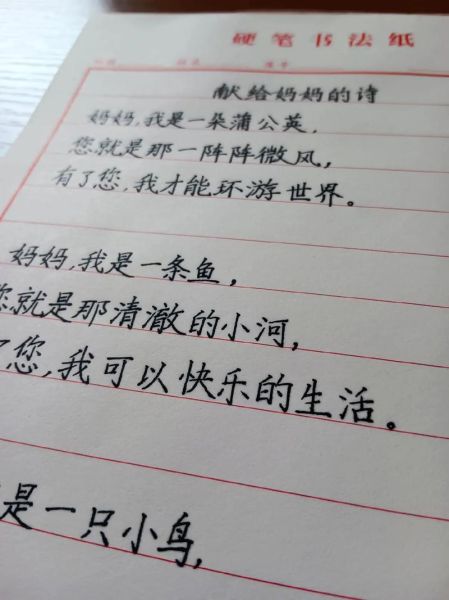 硬笔书法纸
献给妈妈的诗
妈妈,我是一朵蒲公英,
您就是那一阵阵微风,
有了您,我才能环游世界。
妈妈,我是一条鱼,
您就是那清澈的小河,
了您,我可以快乐的生活。
是一只小鸟,